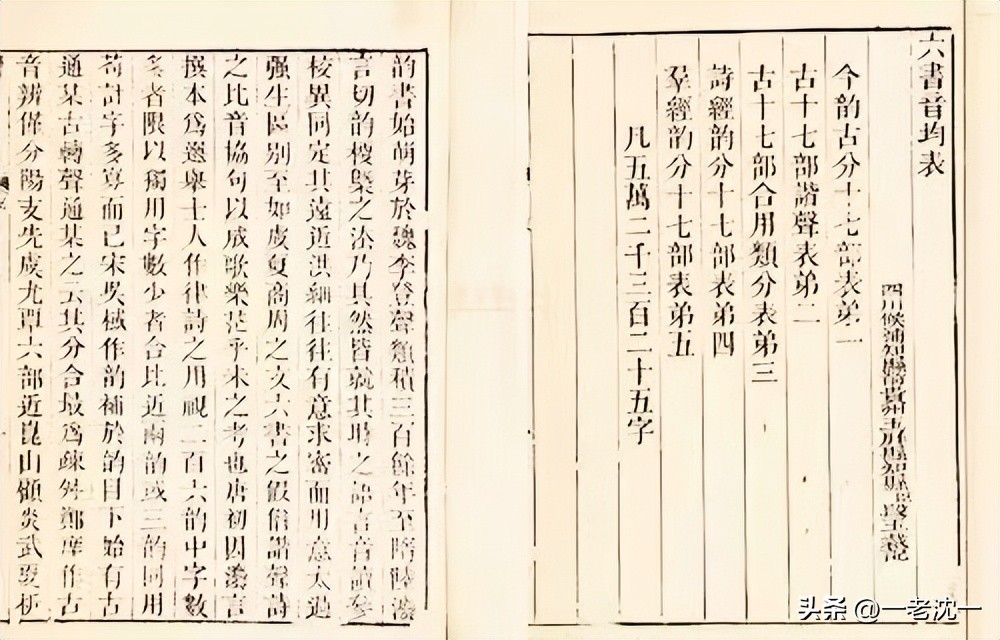 六書音均表
四川候補知縣前貴州玉屏縣知縣段玉裁記
今韵古分十七部表弟一
古十七部諧聲表弟二
古十七部合用類分表弟三
詩經韵分十七部表弟四
羣經韵分十七部表弟五
凡五萬二千三百二十五字
韵書始萌芽於魏李登聲類積三百餘年至隋陸灋
言切韵梗槩之法乃具然皆就其時之語言音讀參
校異同定其遠近洪細往往有意求密而用意太過
强生區別至如虞夏商周之文六書之假借諧聲詩
之比音協句以成歌樂茫乎未之考也唐初因灋言
撰本爲選舉士人作律詩之用視二百六韵中字數
多者限以獨用字數少者合比近兩韵或三韵同用
苟計字多寡而已宋吳棫作韵補於韵目下始有古
通某古轉聲通某之云其分合最爲疎舛鄭庠作古
音辨僅分陽支先虞尤覃六部近崑山顧炎武更析
头条 @一老沈一